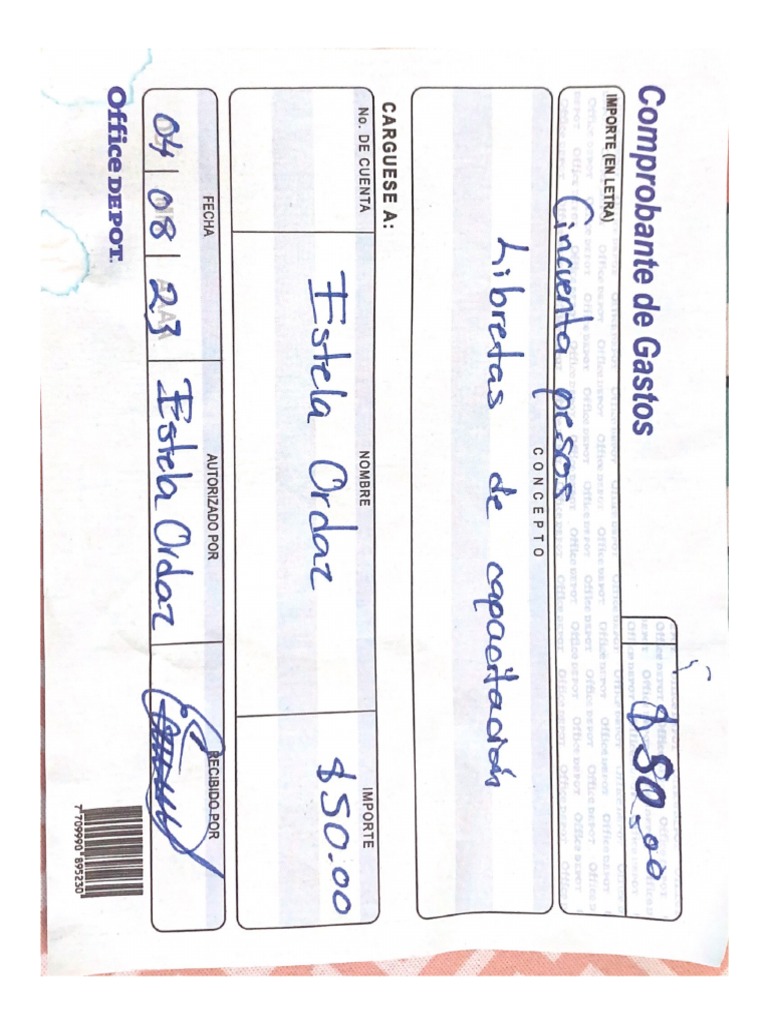 Comprobante de Gastos
$50.00
IMPORTE (EN LETRA)
Cincuenta pesos
CONCEPTO
Libretas de capacitación
CARGUESE A:
No. DE CUENTA NOMBRE IMPORTE
Estela Ordaz $50.00
FECHA AUTORIZADO POR RECIBIDO POR
04 08 23 Estela Ordaz
Office DEPOT
7 709990 895230